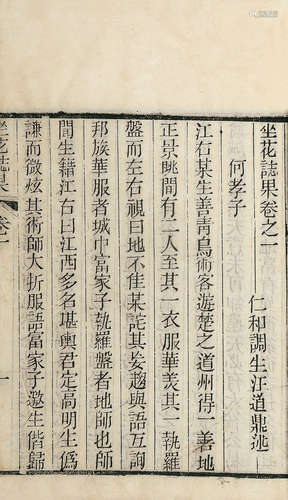 坐花誌果卷之一
仁和調生汪道鼎述
何孝子
江右某生善青烏術客游楚之道州得一善地
正景眺間有二人至其一衣服華羨其一執羅
盤而左右視曰地不佳某詫其妄趨與語互詢
邦族華服者城中富家子執羅盤者地師也師
聞生籍江右曰江西多名堪輿君定高明生僞
謙而微炫其術師大折服語富家子邀生偕歸
坐花誌果
卷一
一